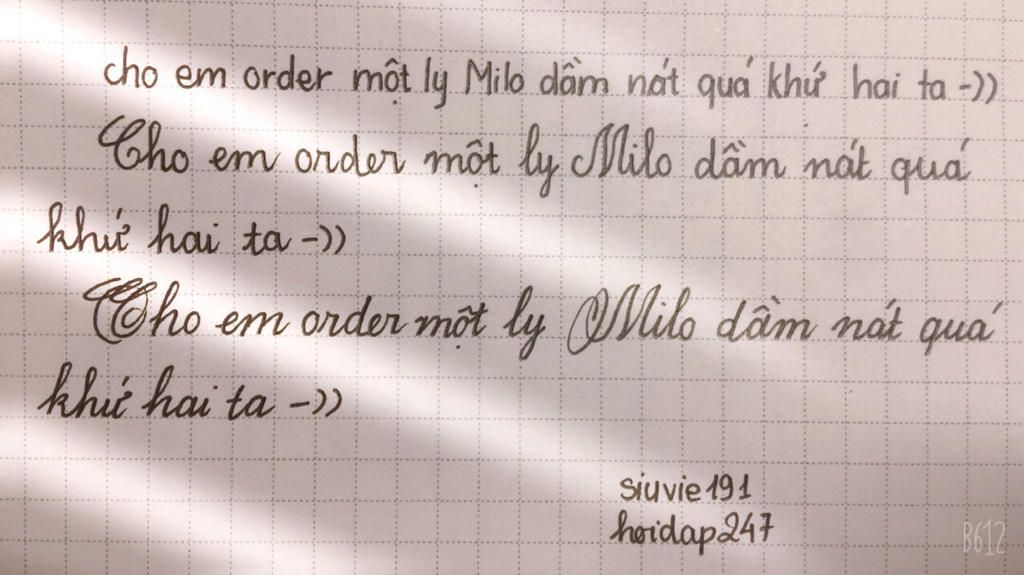 cho em order một ly Milo dầm nát quá khứ hai ta -))
Cho em order một ly Milo dầm nát quá
khứ hai ta -))
Cho em order một ly Milo dầm nát quá
khứ hai ta -))
siuvie191
hoidap247
B612